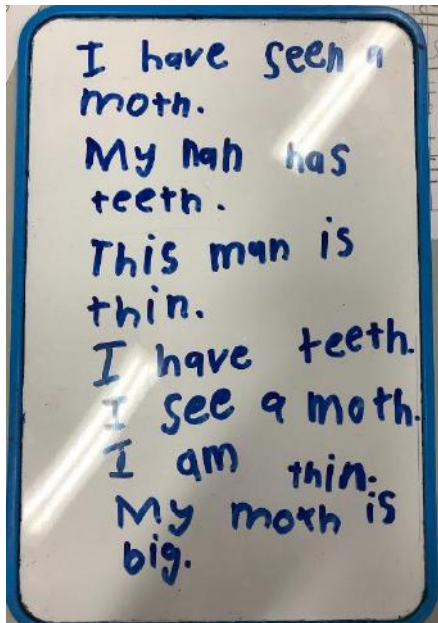 I have seen a
moth.
My nan has
teeth.
This man is
thin.
I have teeth.
I see a moth.
I am thin.
My moth is
big.